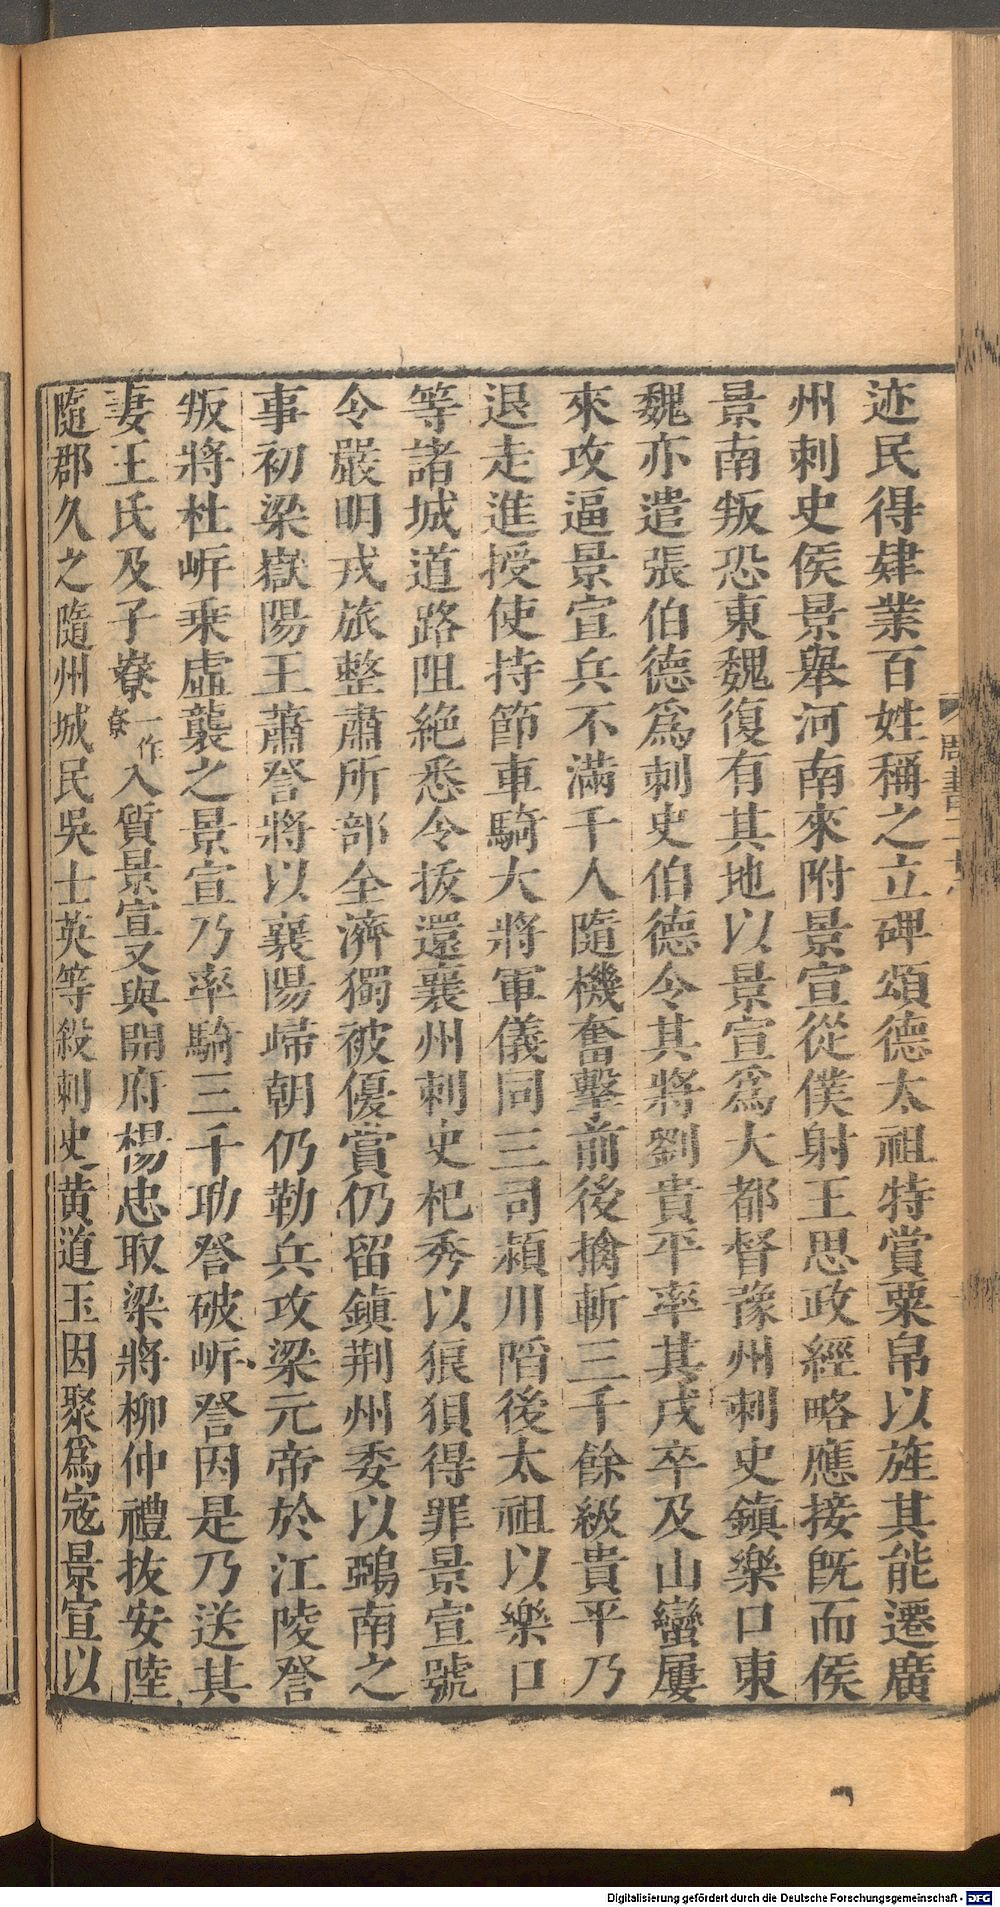 迹民得肄業百姓稱之立碑頌德太祖特賞粟帛以旌其能遷廣
州刺史侯景舉河南來附景宣從僕射王思政經略應接旣而侯
景南叛恐東魏復有其地以景宣爲大都督豫州刺史鎮樂口東
魏亦遣張伯德爲刺史伯德令其將劉貴平率其戍卒及山蠻屢
來攻逼景宣兵不滿千人隨機奮擊前後擒斬三千餘級貴平乃
退走進授使持節車騎大將軍儀同三司潁川陷後太祖以樂口
等諸城道路阻絕悉令拔還襄州刺史杞秀以狼狽得罪景宣號
令嚴明戎旅整肅所部全濟獨被優賞仍留鎮荆州委以鵶南之
事初梁嶽陽王蕭詧將以襄陽歸朝仍勒兵攻梁元帝於江陵詧
叛將杜岸乘虛襲之景宣乃率騎三千助詧破岸詧因是乃送其
妻王氏及子寮一作尞入質景宣又與開府楊忠取梁將柳仲禮拔安陸
隨郡久之隨州城民吳士英等殺刺史黄道玉因聚爲寇景宣以
周書二十八
Digitalisierung gefördert durch die Deutsche Forschungsgemeinschaft - DFG